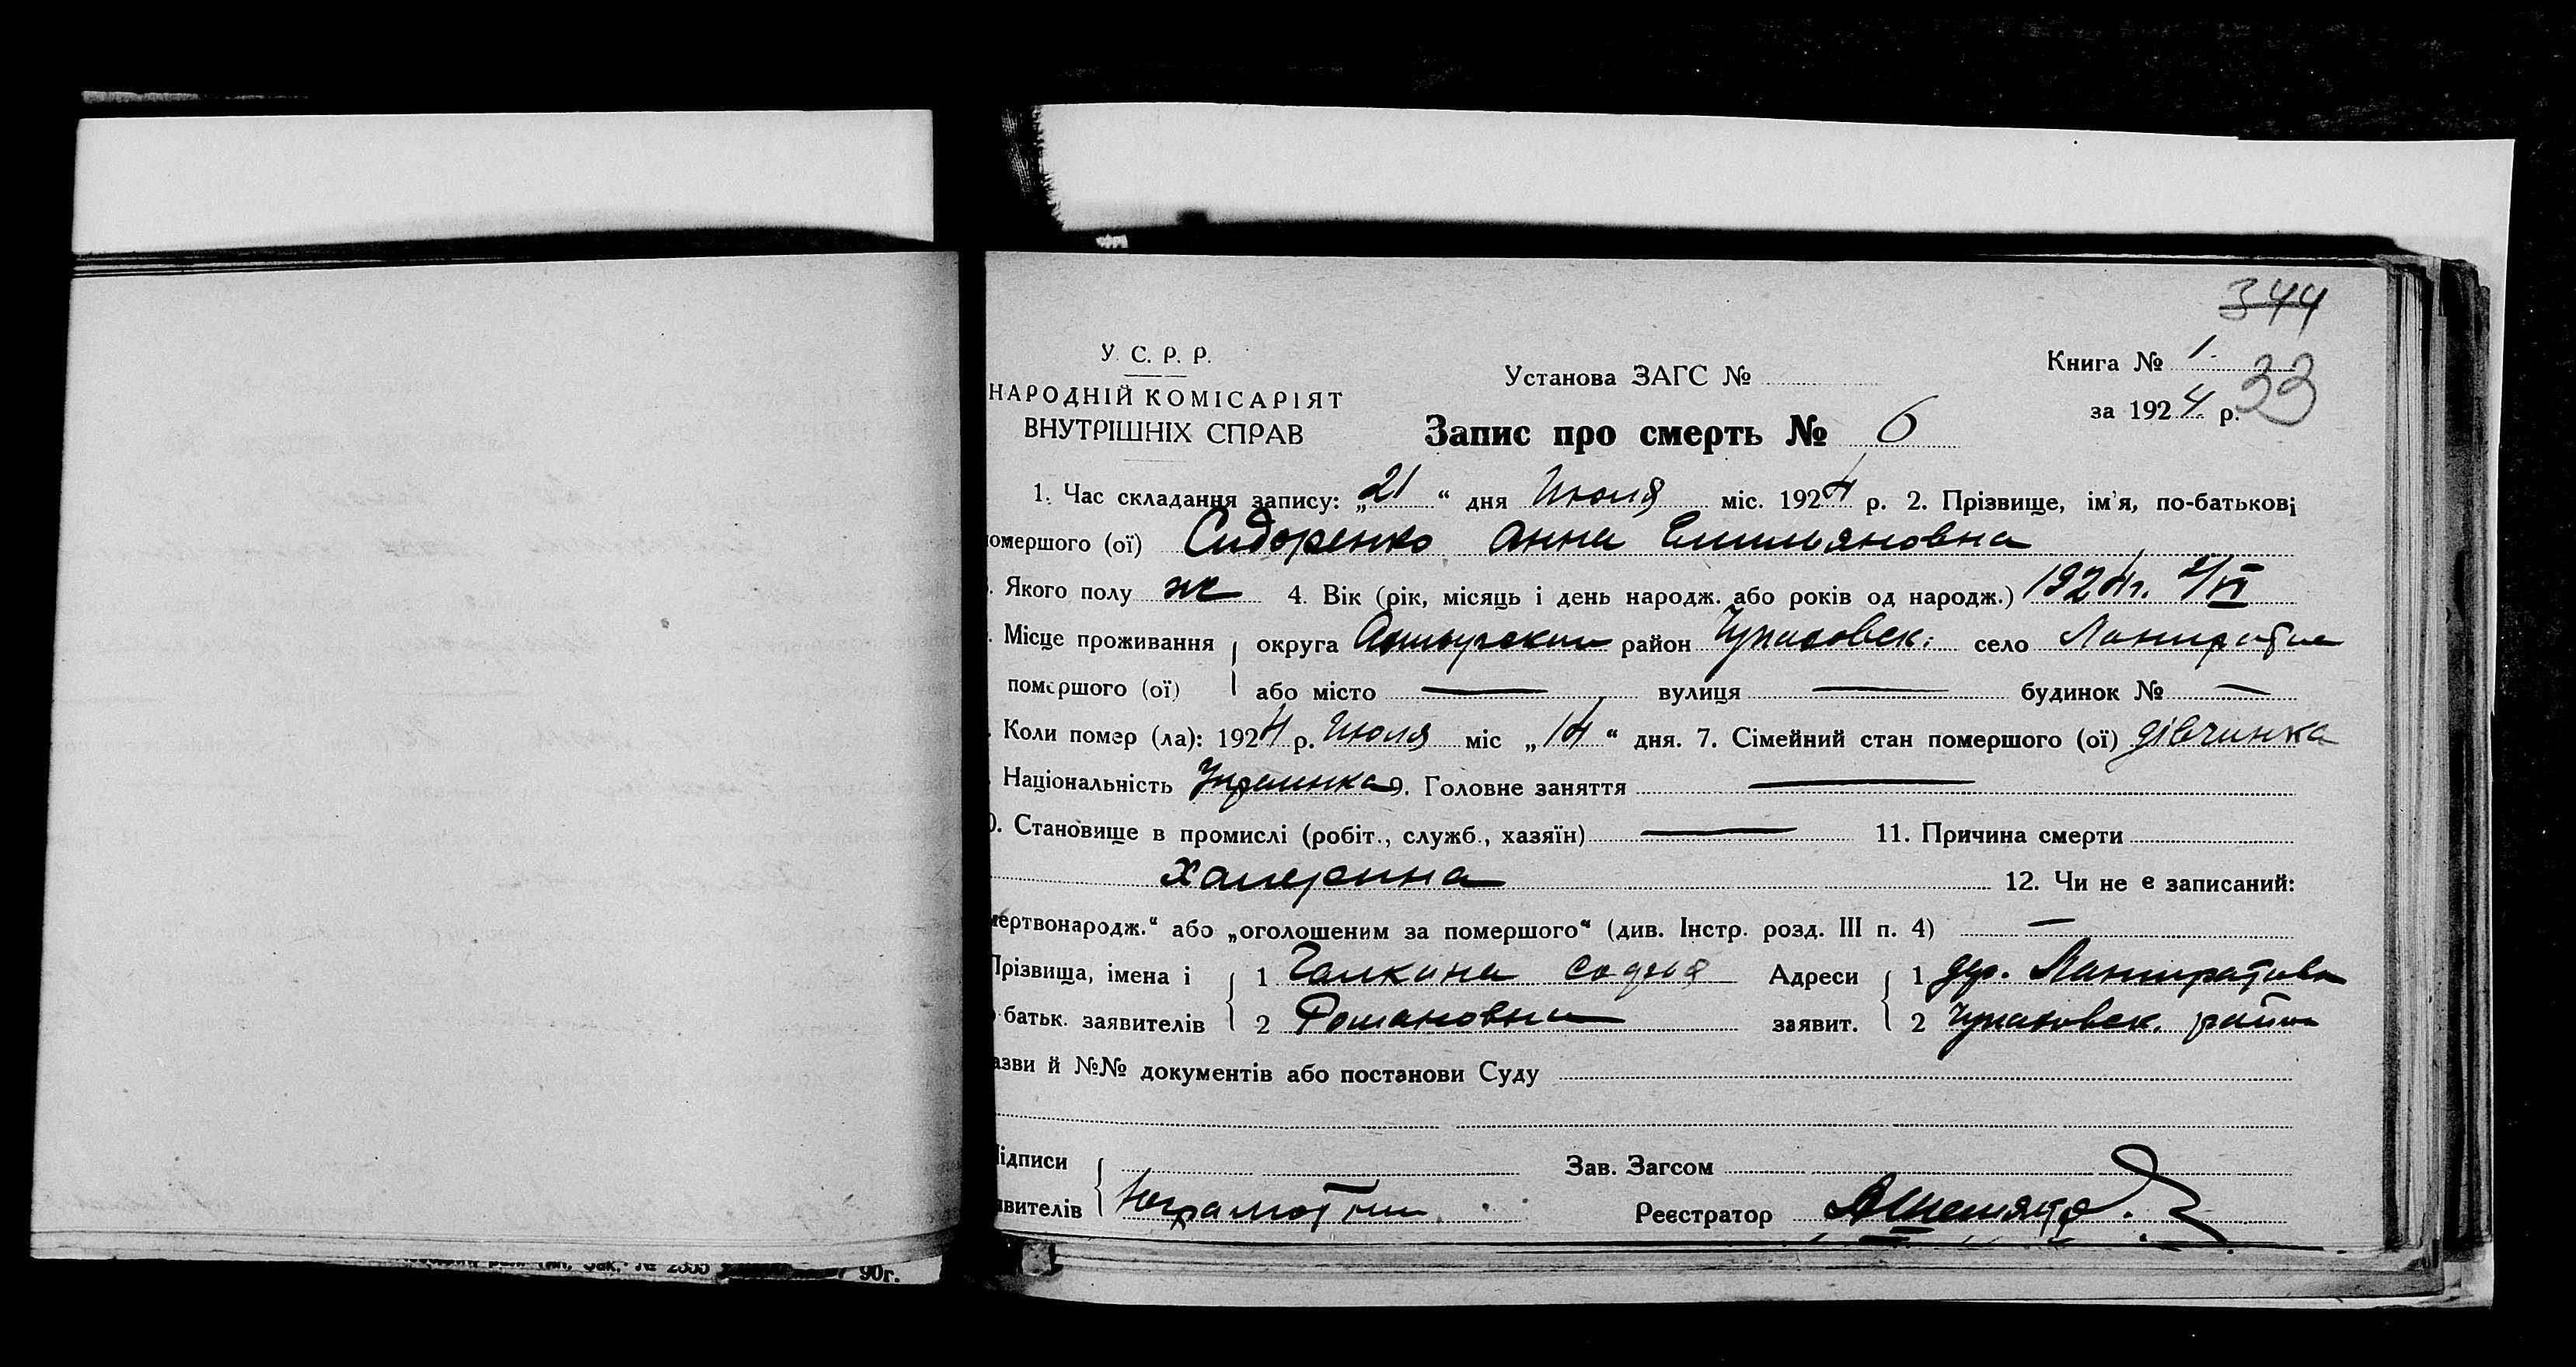 344
У. С. Р. Р.
НАРОДНІЙ КОМІСАРІЯТ
ВНУТРІШНІХ СПРАВ
Установа ЗАГС №
Книга № 1.
за 1924 р.
33
Запис про смерть № 6
1. Час складання запису: „21“ дня Июля міс. 1924 р. 2. Прізвище, ім'я, по-батькові
помершого (ої) Сидоренко Анна Емильяновна
Якого полу ж 4. Вік (рік, місяць і день народж. або років од народж.) 1924г.
Місце проживання округа район село
помершого (ої) або місто — вулиця — будинок № —
Коли помер (ла): 1924 р. Июля міс „14“ дня. 7. Сімейний стан помершого (ої) дівчинка
Національність Украинка 9. Головне заняття —
0. Становище в промислі (робіт., служб., хазяїн) — 11. Причина смерти
12. Чи не є записаний:
мертвонародж.“ або „оголошеним за помершого“ (див. Інстр. розд. III п. 4) —
Прізвища, імена і 1 Галкина София Адреси 1 дер.
батьк. заявителів 2 Романовна заявит. 2 район
азви й №№ документів або постанови Суду
ідписи Зав. Загсом
явителів Неграмотни Реєстратор
90г.